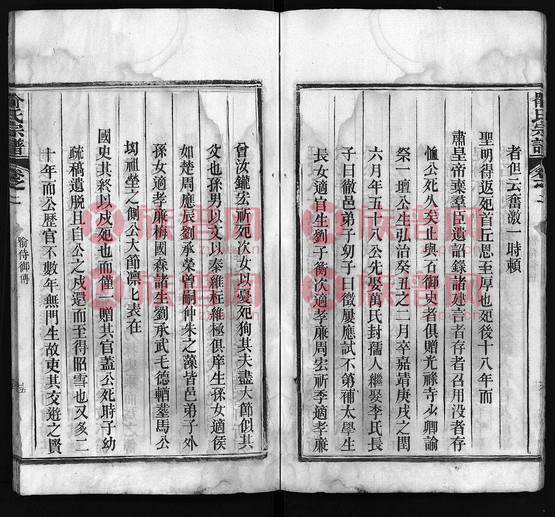 者但云奮激一時賴
聖明得返死首丘恩至厚也死後十八年而
肅皇帝棄羣臣遺詔錄諸建言者存者召用沒者存
恤公死久矣止與石御史者俱贈光祿寺少卿諭
祭一壇公生弘治癸丑之二月卒嘉靖庚戌之閏
六月年五十八公先娶萬氏封孺人繼娶李氏長
子曰徹邑弟子幼子曰徵屢應試不第補太學生
長女適官生劉子衡次適孝廉周宏祈季適孝廉
曾汝鑵宏祈死次女以憂死狗其夫盡大節似其
父也孫男以文以泰維柱維極俱庠生孫女適侯
如楚周應辰劉承榮曾嗣仲朱之藻皆邑弟子外
孫女適孝廉梅國森諸生劉承武毛德輶葬馬公
坳祖塋之側公大節凛凛表在
國史其終以戍死也而僅一贈其官蓋公死時子幼
疏稿遺脫且自公之戍還而至得昭雪也又幾二
十年而公歷官不數年無門生故吏其交遊之賢
俞氏宗譜
卷之一
俞侍御傳
俞氏宗譜
卷之一
族譜网
族譜网
族譜网
族譜网